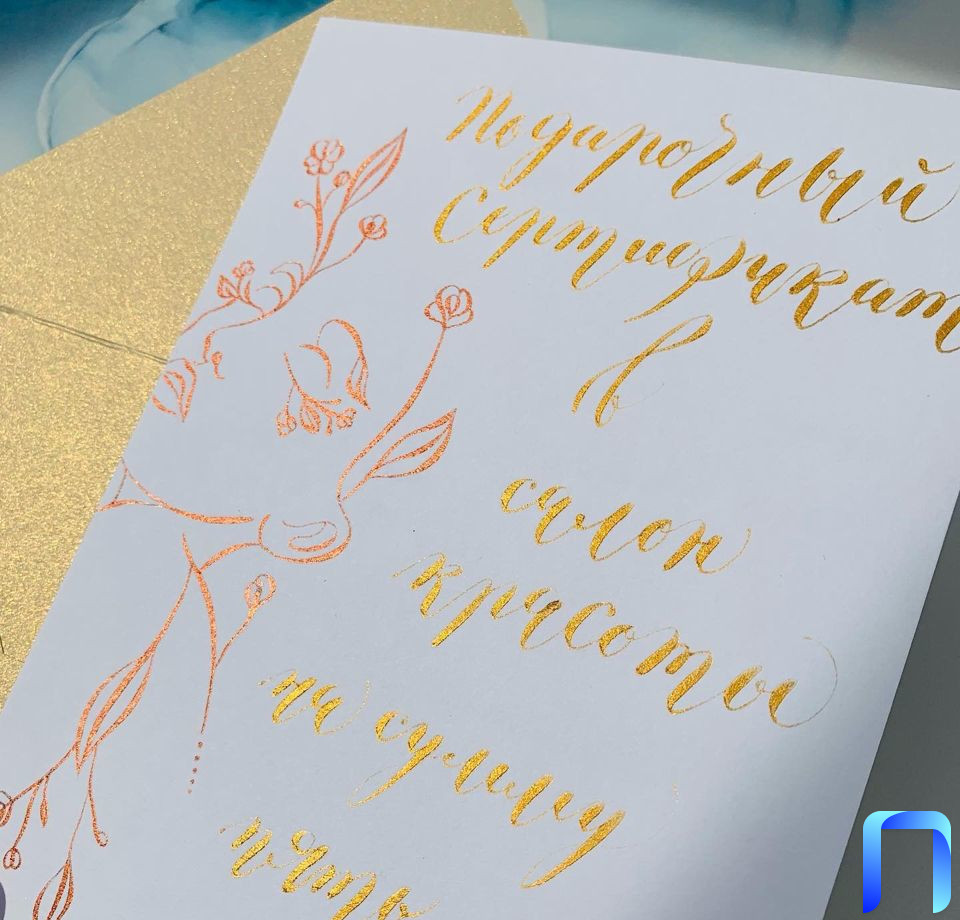 Подарочный
Сертификат
в
салон
красоты
на сумму
пять